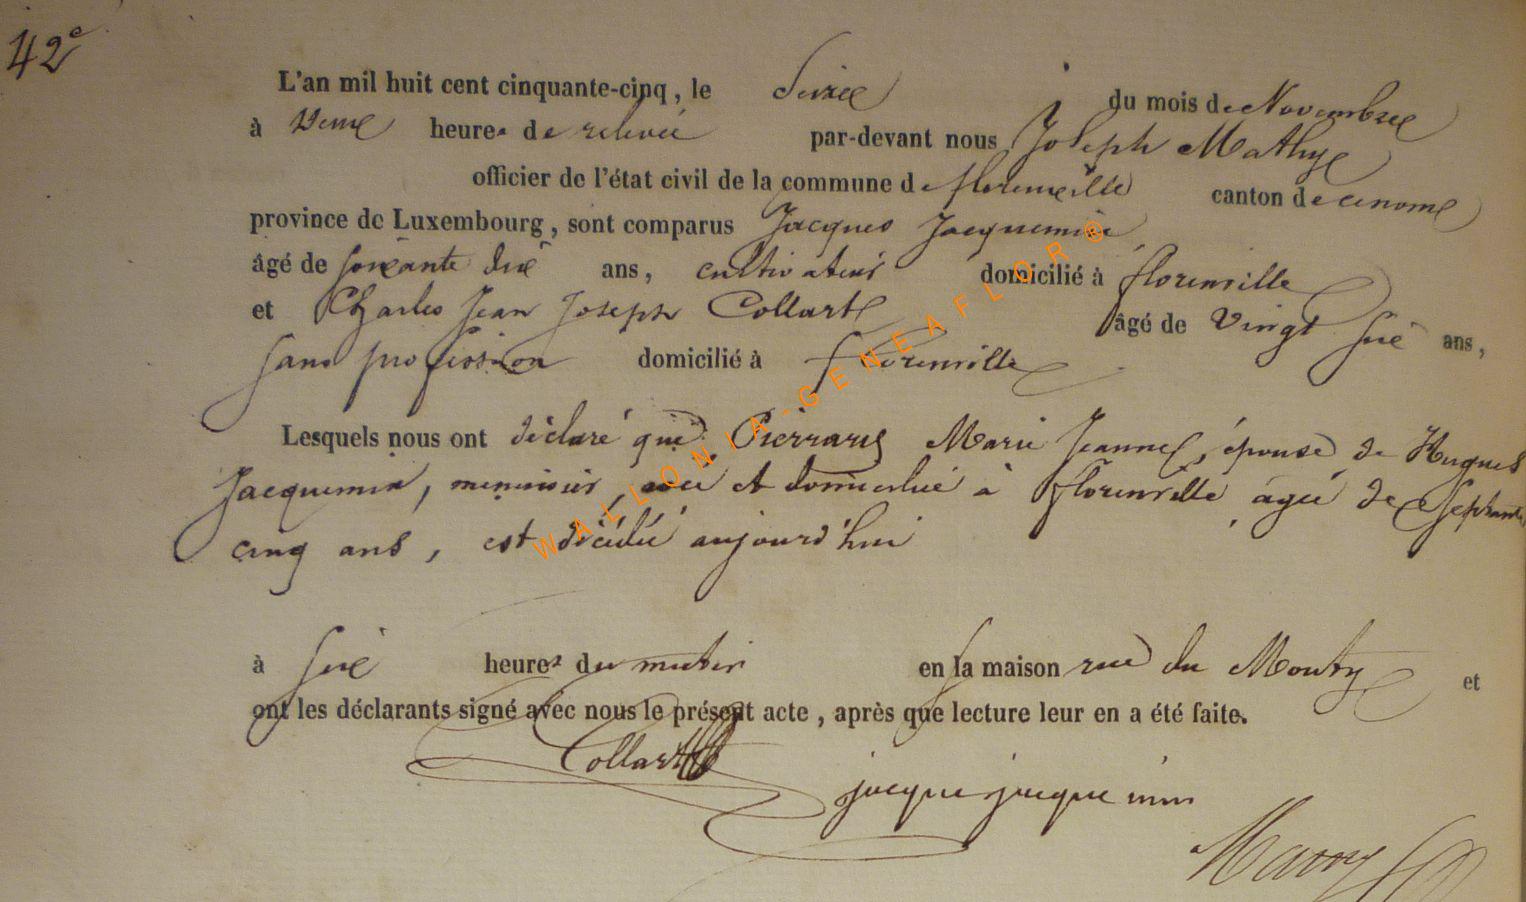 42e
L'an mil huit cent cinquante-cinq, le Seize du mois de Novembre
à heures de relevée par-devant nous Joseph Mathys
officier de l'état civil de la commune de florenville canton de ce nom
province de Luxembourg, sont comparus Jacques Jacquemin
âgé de soixante dix ans, cultivateur domicilié à florenville
et Charles Jean Joseph Collart âgé de Vingt six ans,
sans profession domicilié à florenville
Lesquels nous ont déclaré que Pierrard Marie Jeanne, épouse de Hugues
Jacquemin, menuisier, née et domiciliée à florenville agée de Septante
cinq ans, est décédée aujourd'hui
à six heures du matin en la maison rue du Mouty et
ont les déclarants signé avec nous le présent acte, après que lecture leur en a été faite.
Collart
jacque jacquemin
WALLONIA-GENEAFLOR©